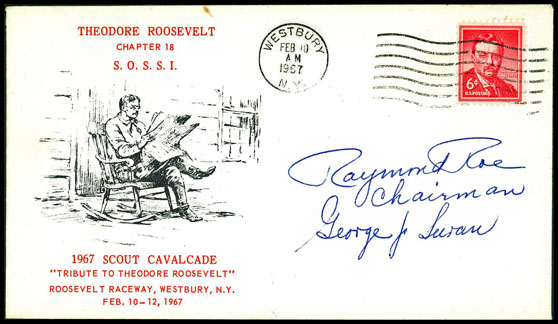 THEODORE ROOSEVELT
CHAPTER 18
S. O. S. S. I.
WESTBURY
FEB 10
AM
1967
N.Y.
6¢
U.S. POSTAGE
Raymond Roe
Chairman
George J.
1967 SCOUT CAVALCADE
"TRIBUTE TO THEODORE ROOSEVELT"
ROOSEVELT RACEWAY, WESTBURY, N.Y.
FEB. 10-12, 1967